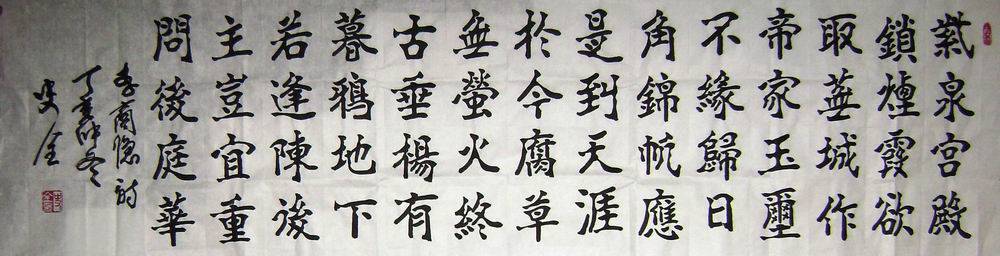 紫泉宮殿
鎖煙霞欲
取蕪城作
帝家玉璽
不緣歸日
角錦帆應
是到天涯
於今腐草
無螢火終
古垂楊有
暮鴉地下
若逢陳後
主豈宜重
問後庭華
李商隱詩
丁亥仲冬